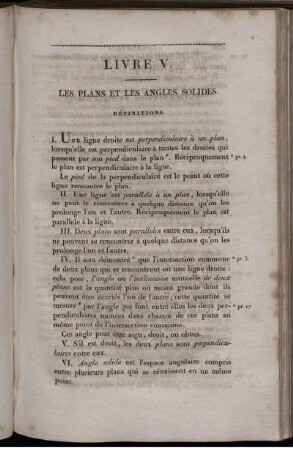 LIVRE V.
LES PLANS ET LES ANGLES SOLIDES.
DÉFINITIONS.
I. UNE ligne droite est perpendiculaire à un plan,
lorsqu'elle est perpendiculaire à toutes les droites qui
passent par son pied dans le plan*. Réciproquement * pr. 4.
le plan est perpendiculaire à la ligne.
Le pied de la perpendiculaire est le point où cette
ligne rencontre le plan.
II. Une ligne est parallèle à un plan, lorsqu'elle
ne peut le rencontrer à quelque distance qu'on les
prolonge l'un et l'autre. Réciproquement le plan est
parallèle à la ligne.
III. Deux plans sont parallèles entre eux, lorsqu'ils
ne peuvent se rencontrer à quelque distance qu'on les
prolonge l'un et l'autre.
IV. Il sera démontré* que l'intersection commune * pr. 3.
de deux plans qui se rencontrent est une ligne droite :
cela posé, l'angle ou l'inclinaison mutuelle de deux
plans est la quantité plus ou moins grande dont ils
peuvent être écartés l'un de l'autre; cette quantité se
mesure* par l'angle que font entre elles les deux per- * pr. 17.
pendiculaires menées dans chacun de ces plans au
même point de l'intersection commune.
Cet angle peut être aigu, droit, ou obtus.
V. S'il est droit, les deux plans sont perpendicu-
laires entre eux.
VI. Angle solide est l'espace angulaire compris
entre plusieurs plans qui se réunissent en un même
point.